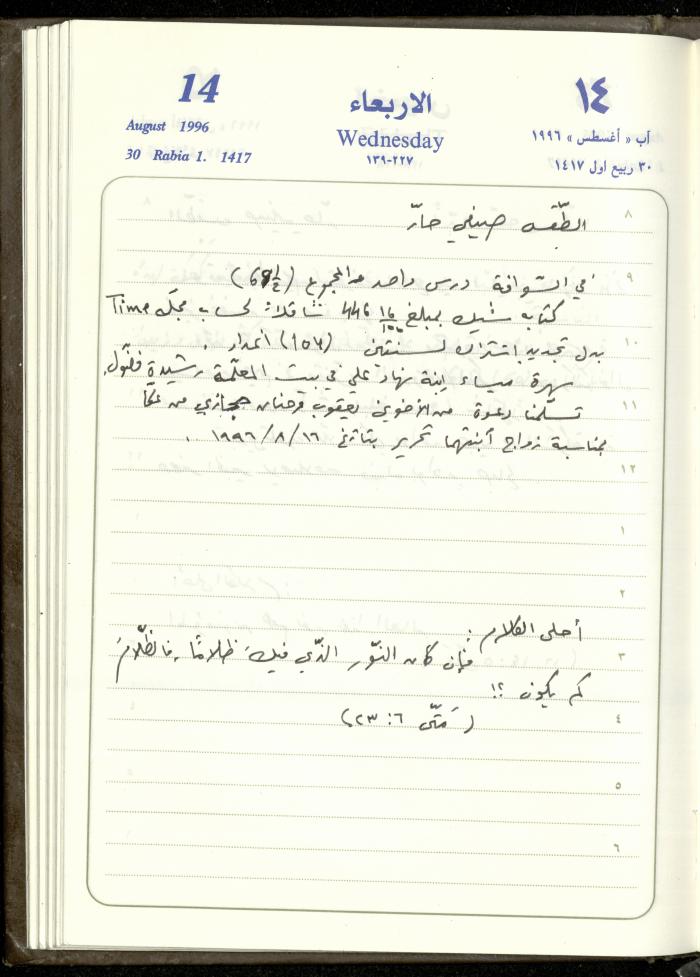 14
August 1996
30 Rabia 1. 1417
الاربعاء
Wednesday
٢٢٧-١٣٩
١٤
آب « أغسطس » ١٩٩٦
٣٠ ربيع اول ١٤١٧
٨
الطّقس صيفي حارّ
٩
في الشوافة درس واحد والمجموع
كتابه شيك بمبلغ ٤٤٦ ١٦/١٠٠ شاقلاً لحساب مجلة Time
١٠
بدل تجديد اشتراك لسنتين (١٥٦) أعداد .
سهرة مياء إبنة نهاد علي في بيت المعلّمة رشيدة
١١
تسلّمنا دعوة من الأخوين يعقوب وحنان حجازي من عكّا
بمناسبة زواج أبنتهما تحرير بتاريخ ١٦ / ٨ / ١٩٩٦ .
١٢
١
٢
أحلى الكلام :
٣
فإن كان النّور الذّي فيك ظلامًا، فالظّلامُ
كم يكون ؟!
٤
( مَتّى ٦ : ٢٣ )
٥
٦